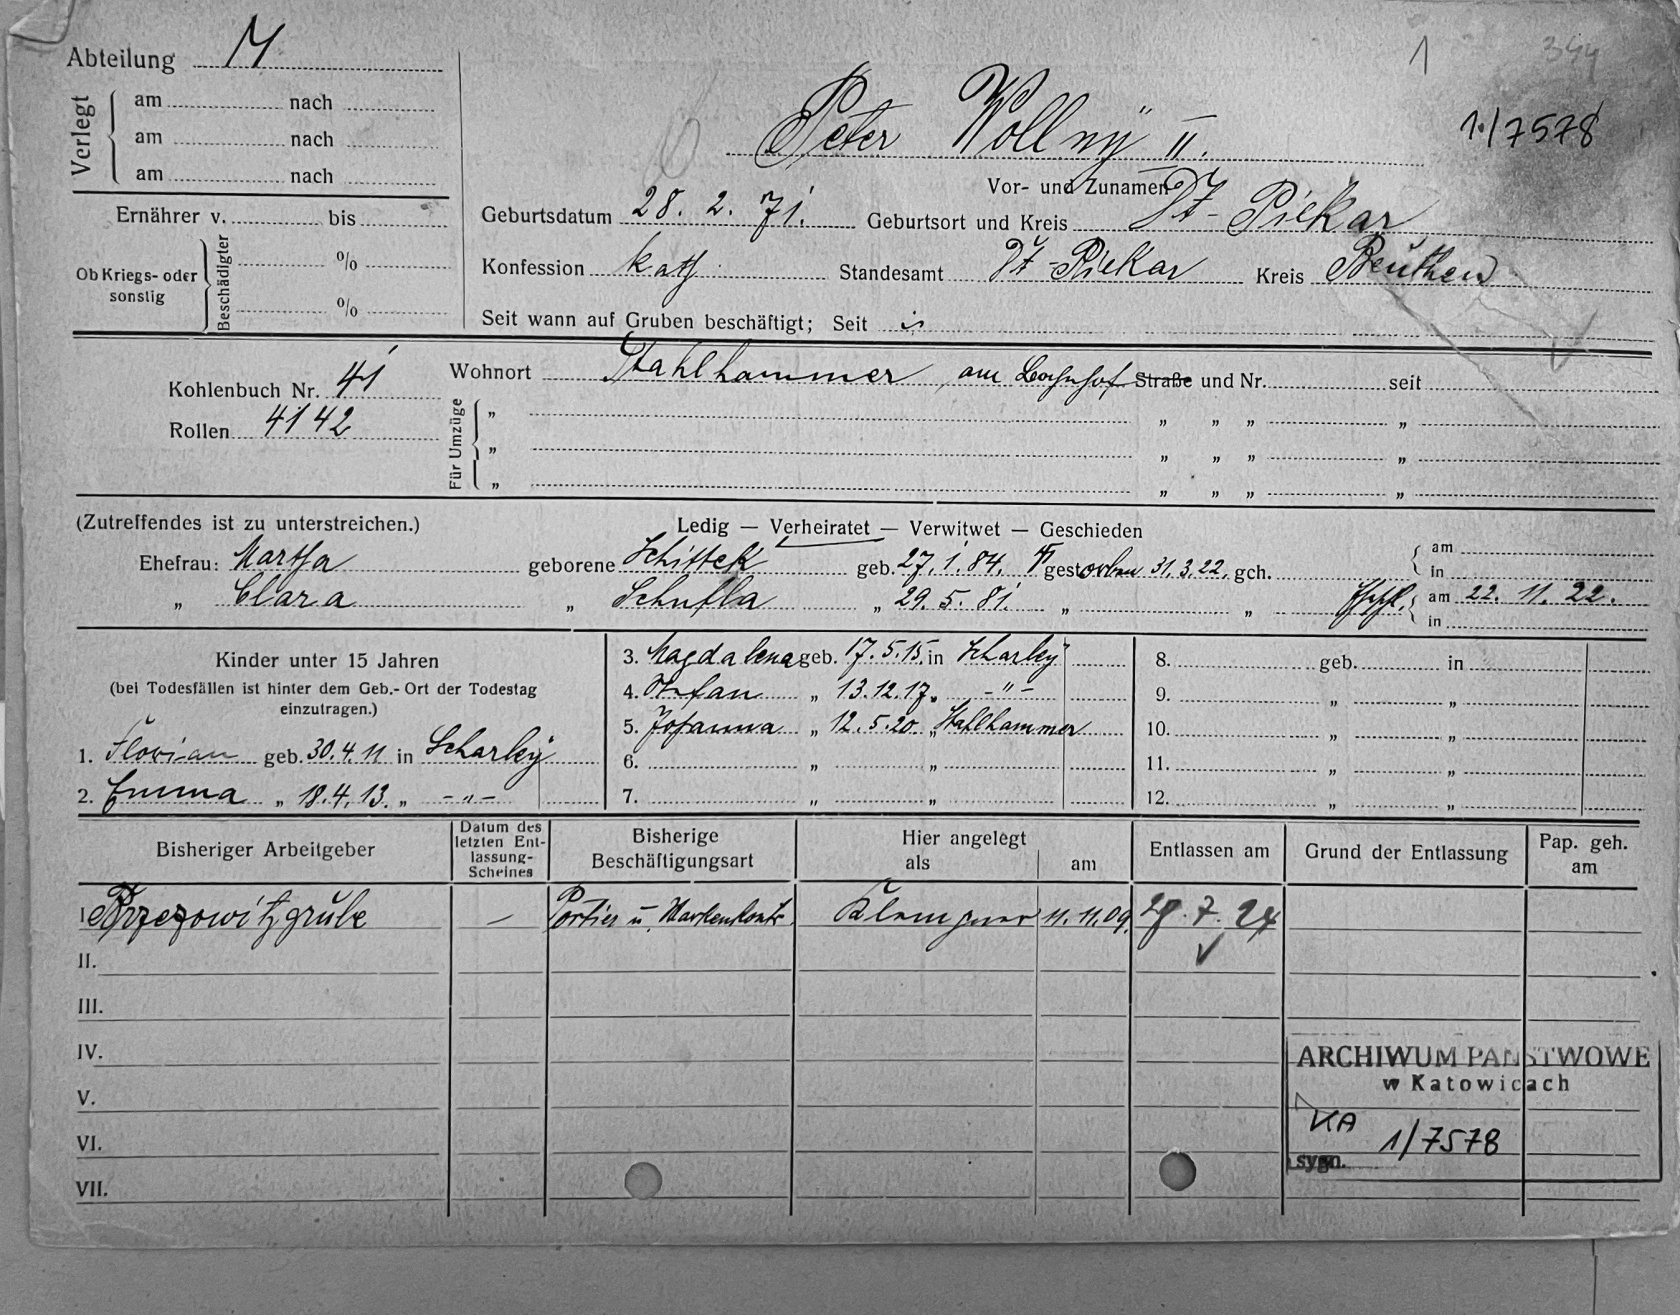 Abteilung M
1 344
Verlegt
am nach
am nach
am nach
Peter Wollny II.
1/7578
Vor- und Zunamen
Ernährer v. bis
Geburtsdatum 28. 2. 71. Geburtsort und Kreis Dt-Piekar
Ob Kriegs- oder sonstig Beschädigter
%
%
Konfession kath. Standesamt Dt-Piekar Kreis Beuthen
Seit wann auf Gruben beschäftigt; Seit
Kohlenbuch Nr. 41
Rollen 4142
Wohnort Stahlhammer am Bahnhof Straße und Nr. seit
Für Umzüge
„ „ „ „ „
„ „ „ „ „
„ „ „ „ „
(Zutreffendes ist zu unterstreichen.) Ledig — Verheiratet — Verwitwet — Geschieden
Ehefrau: Martha geborene Schittek geb. 27. 1. 84. gestorben 31. 3. 22. gch. am
in
„ Clara „ „ 29. 5. 81. „ „ am 22. 11. 22.
in
Kinder unter 15 Jahren
(bei Todesfällen ist hinter dem Geb.-Ort der Todestag
einzutragen.)
1. Florian geb. 30. 4. 11 in Scharley
2. Emma „ 18. 4. 13. „ -„-
3. Magdalena geb. 17. 5. 15. in Scharley
4. Stefan „ 13. 12. 17. „ -„-
5. Johanna „ 12. 5. 20. „ Stahlhammer
6. „ „
7. „ „
8. geb. in
9. „ „
10. „ „
11. „ „
12. „ „
Bisheriger Arbeitgeber
Datum des
letzten Ent-
lassung-
Scheines
Bisherige
Beschäftigungsart
Hier angelegt
als am
Entlassen am
Grund der Entlassung
Pap. geh.
am
I. Brzezowitzgrube — Portier u. Markenkontr. Klempner 11. 11. 09. 28. 7. 24
II.
III.
IV.
V.
VI.
VII.
ARCHIWUM PAŃSTWOWE
w Katowicach
KA
1/7578
sygn.